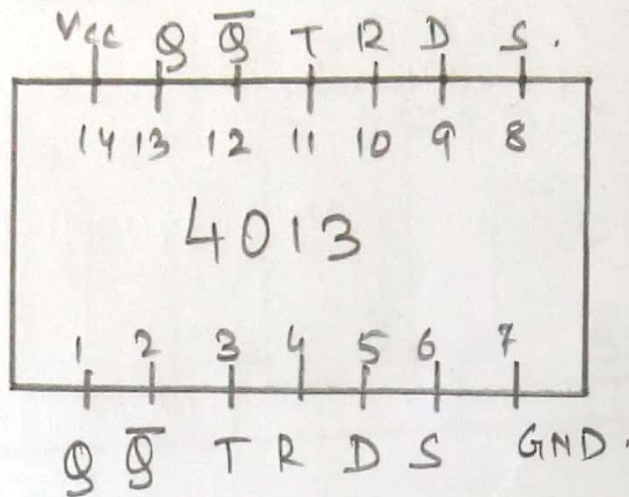 Vcc Q Q̅ T R D S.
14 13 12 11 10 9 8
4013
1 2 3 4 5 6 7
Q Q̅ T R D S GND.